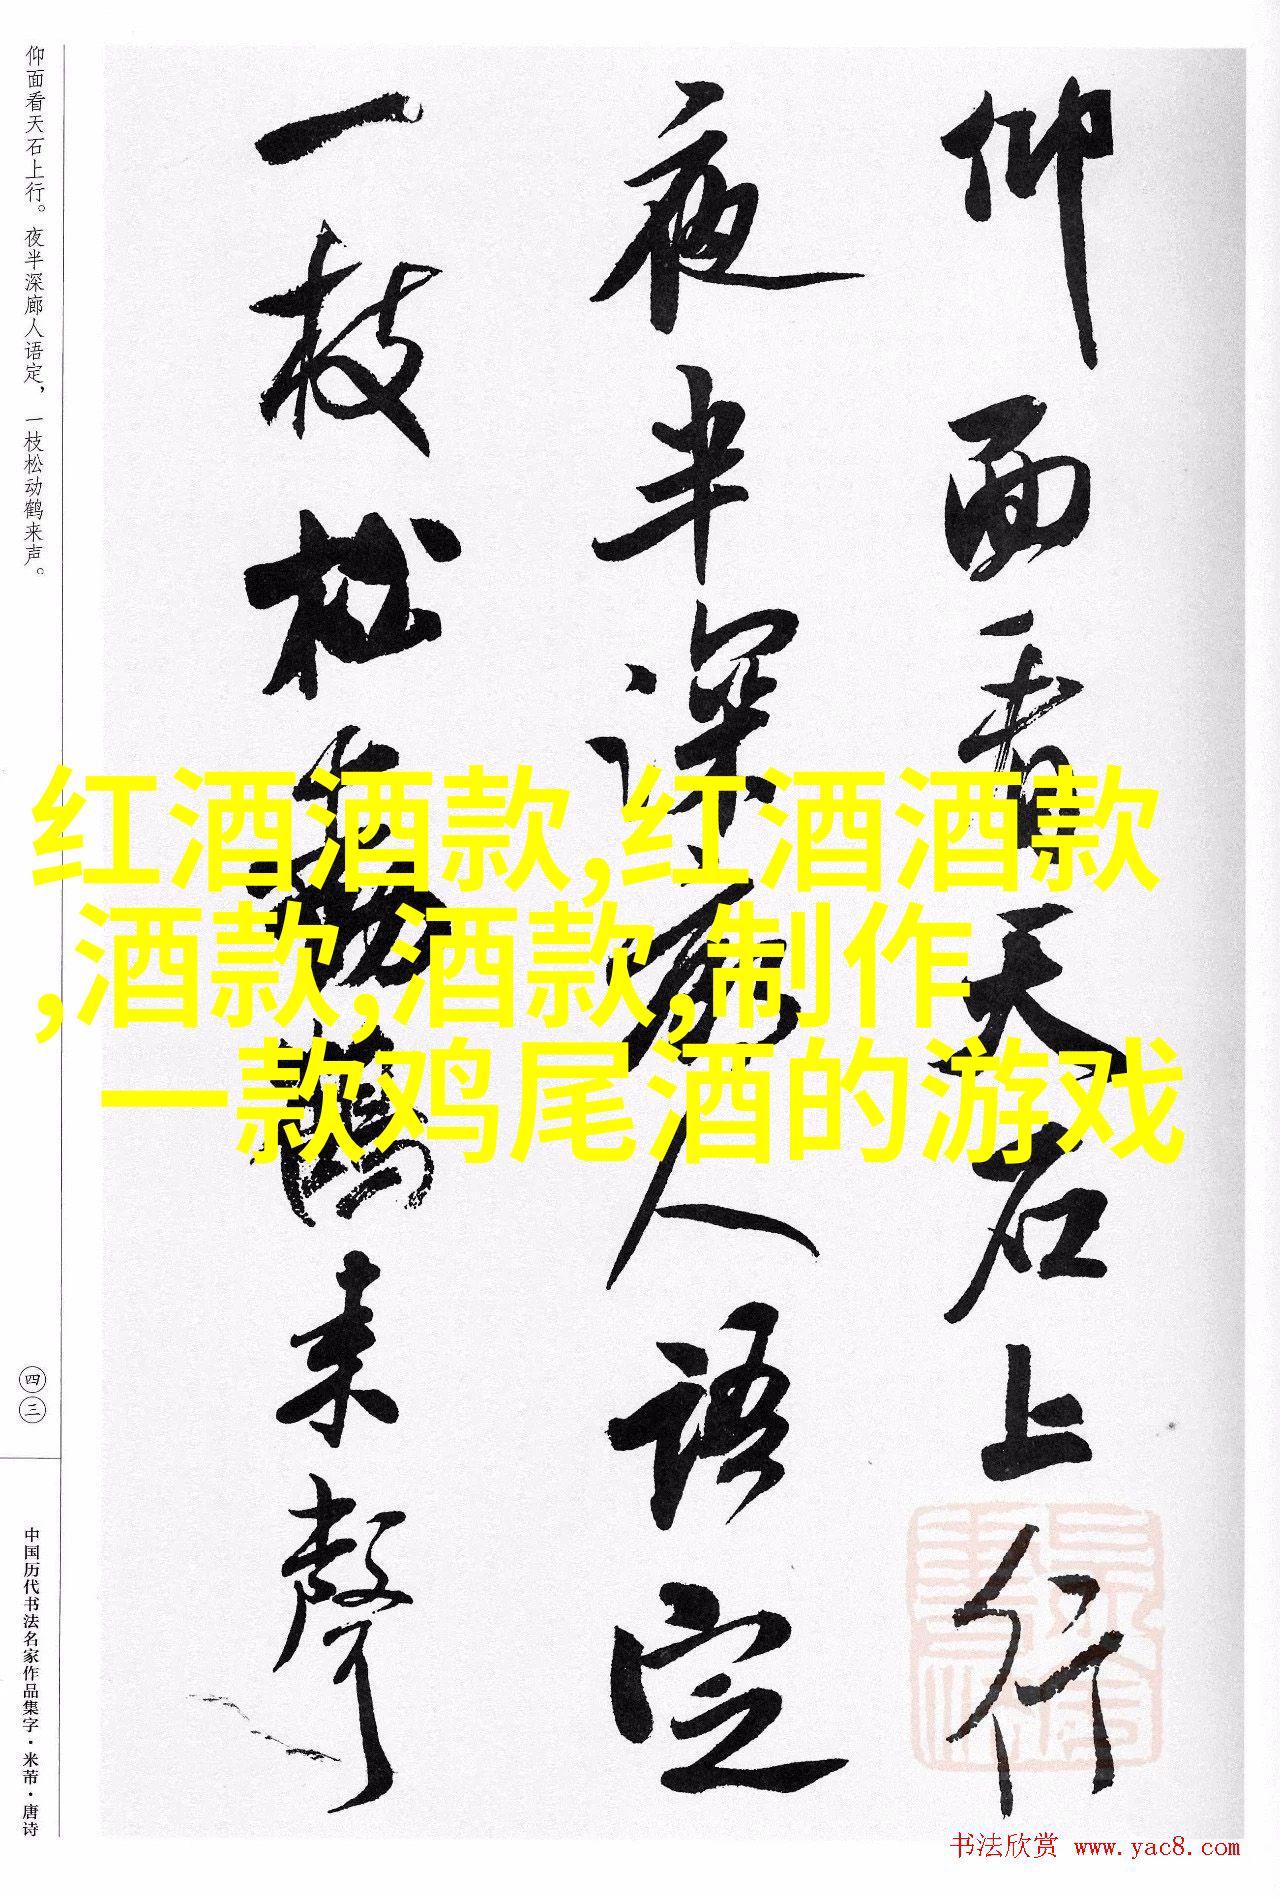 仰面看天石上行
夜半深廊人语定
一枝松動鶴来聲
仰面看天石上行。夜半深廊人语定，一枝松动鹤来声。
四三
中国历代书法名家作品集字·米芾·唐诗
红酒酒款,红酒酒款
,酒款,酒款,制作
一款鸡尾酒的游戏
书法欣赏 www.yac8.com